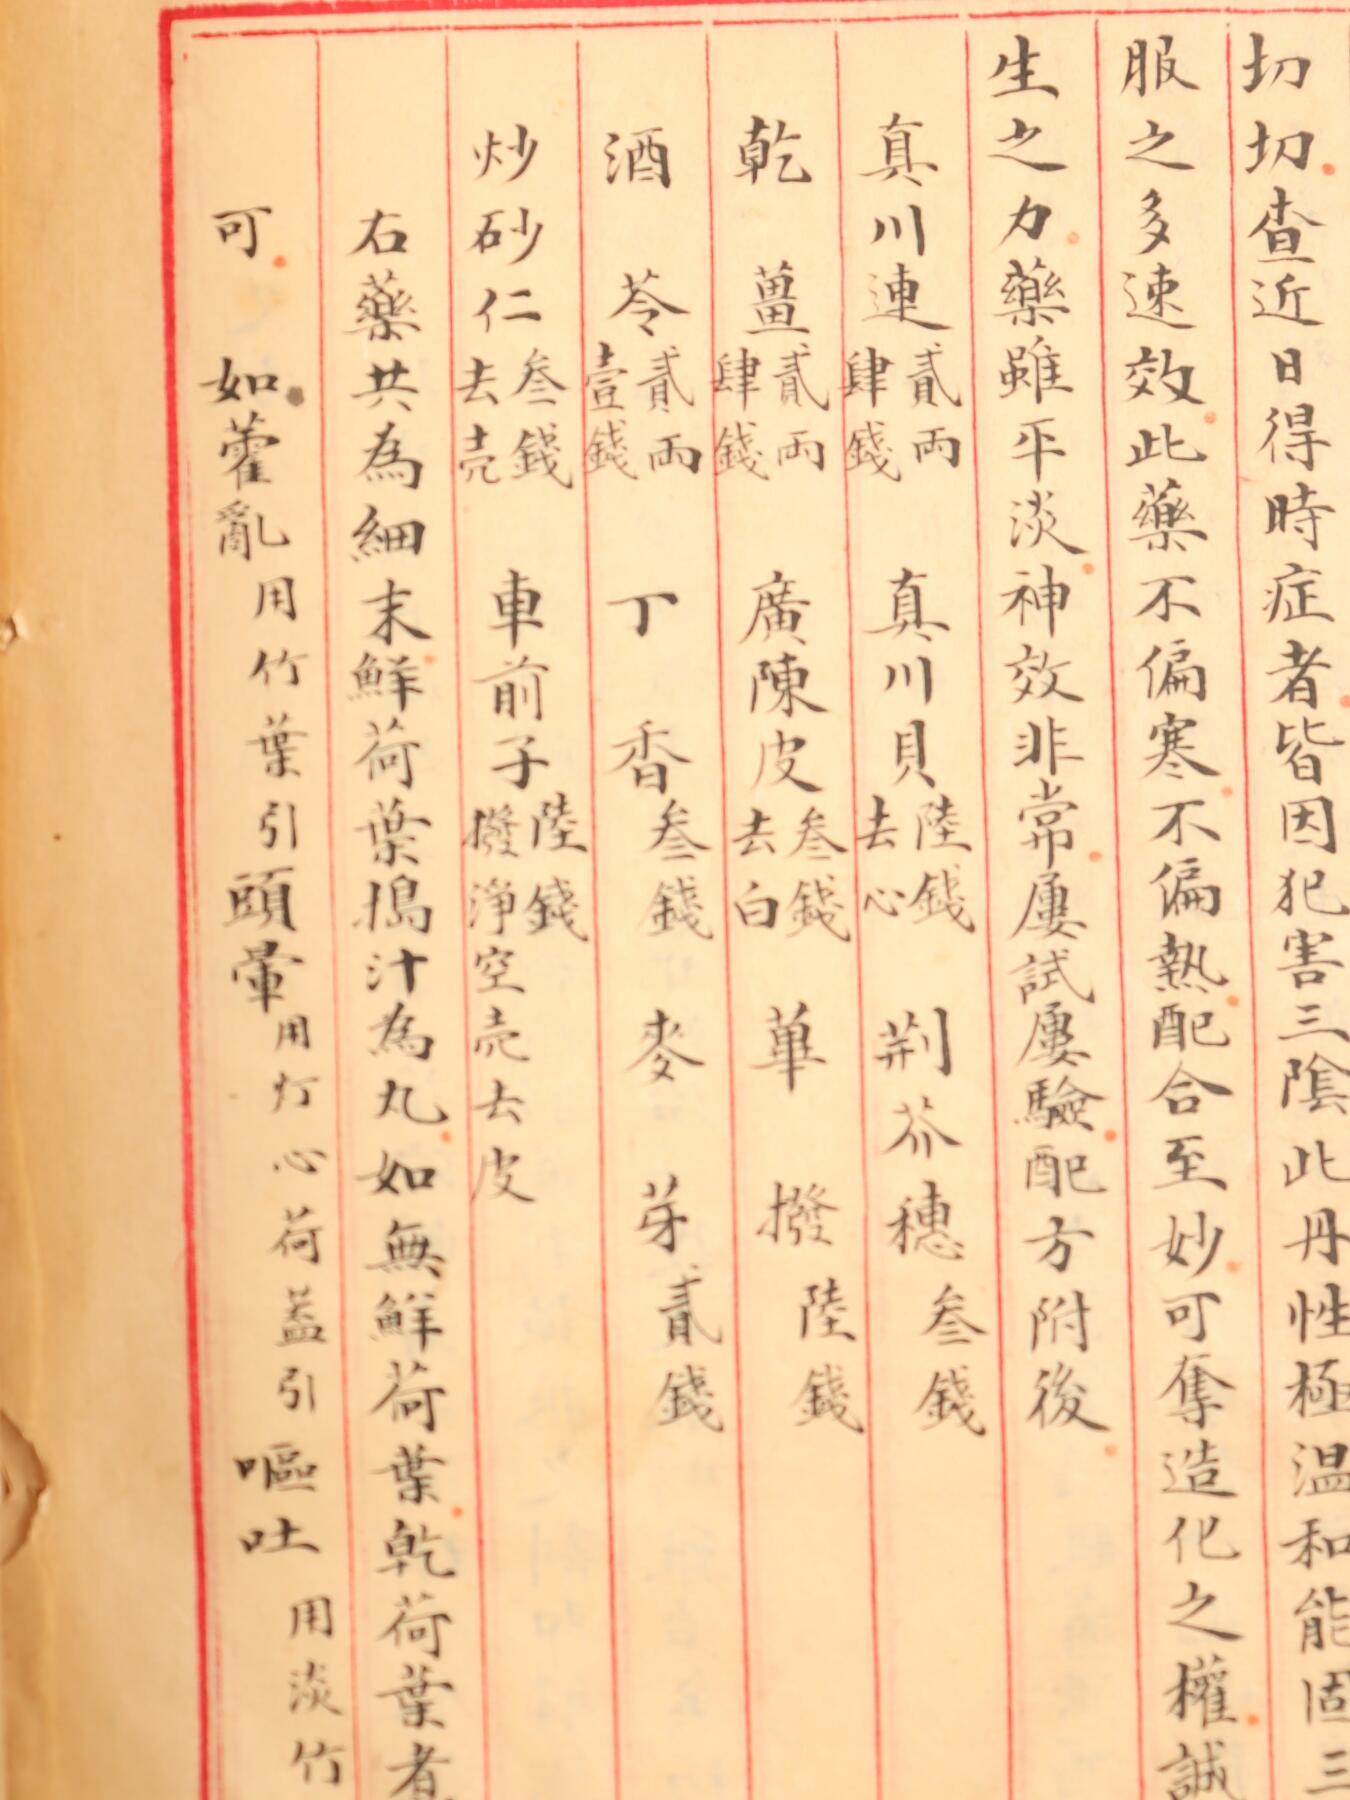 切切查近日得時症者皆因犯害三陰此丹性極温和能固三
服之多速效此藥不偏寒不偏熱配合至妙可奪造化之權誠
生之力藥雖平淡神效非常屢試屢驗配方附後
真川連貳兩肆錢 真川貝陸錢去心 荆芥穗叁錢
乾薑貳兩肆錢 廣陳皮叁錢去白 蓽撥陸錢
酒苓貳兩壹錢 丁香叁錢 麥芽貳錢
炒砂仁叁錢去壳 車前子陸錢撥淨空壳去皮
右藥共為細末鮮荷葉搗汁為丸如無鮮荷葉乾荷葉者
可 如藿亂用竹葉引頭暈用灯心荷盖引嘔吐用淡竹